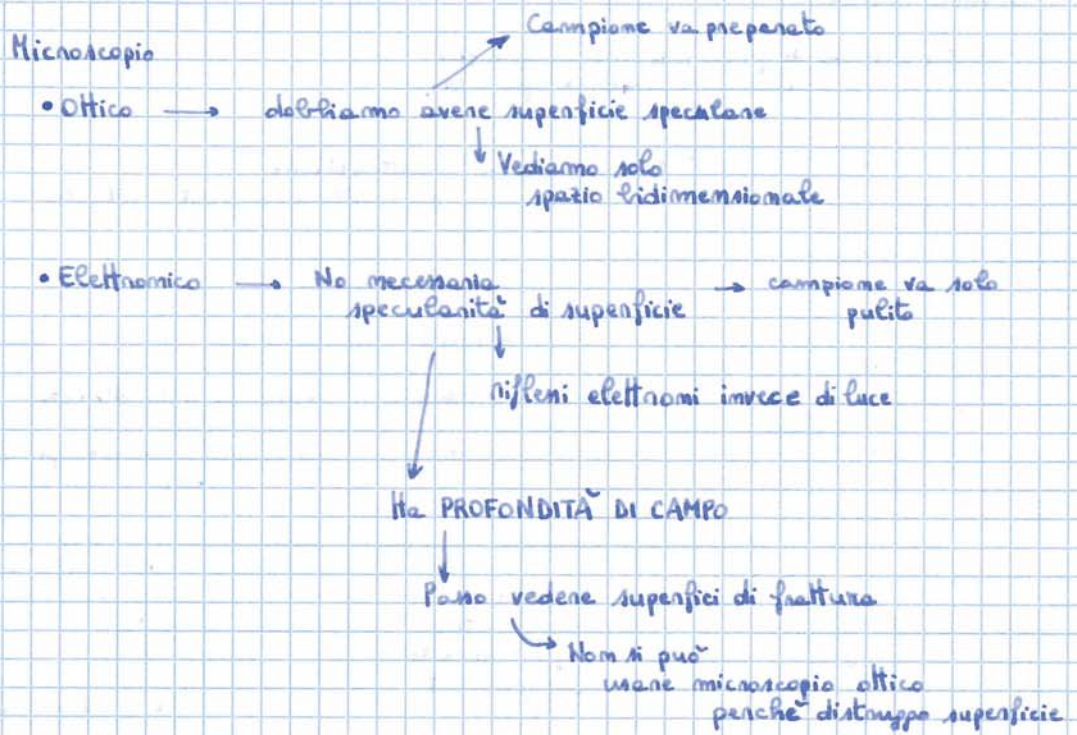 Campione va preparato
Microscopio
• Ottico → dobbiamo avere superficie speculare
Vediamo solo
spazio bidimensionale
• Elettronico → No necessaria → campione va solo
specularità di superficie pulito
rifleni elettroni invece di luce
Ha PROFONDITÀ DI CAMPO
Posso vedere superfici di frattura
Non si può
usare microscopio ottico
perché distruggo superficie